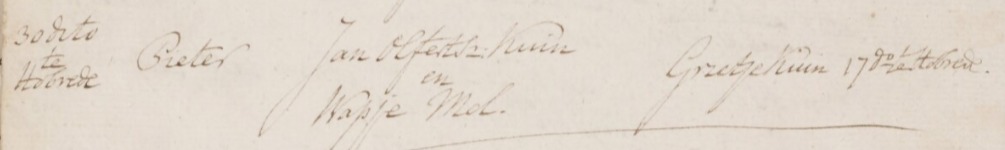 30 dito
te
Hobrede
Pieter
Jan Olfertsz: Kuin
en
Wapje Mol.
Grietje Kuin 17 do te Hobrede.